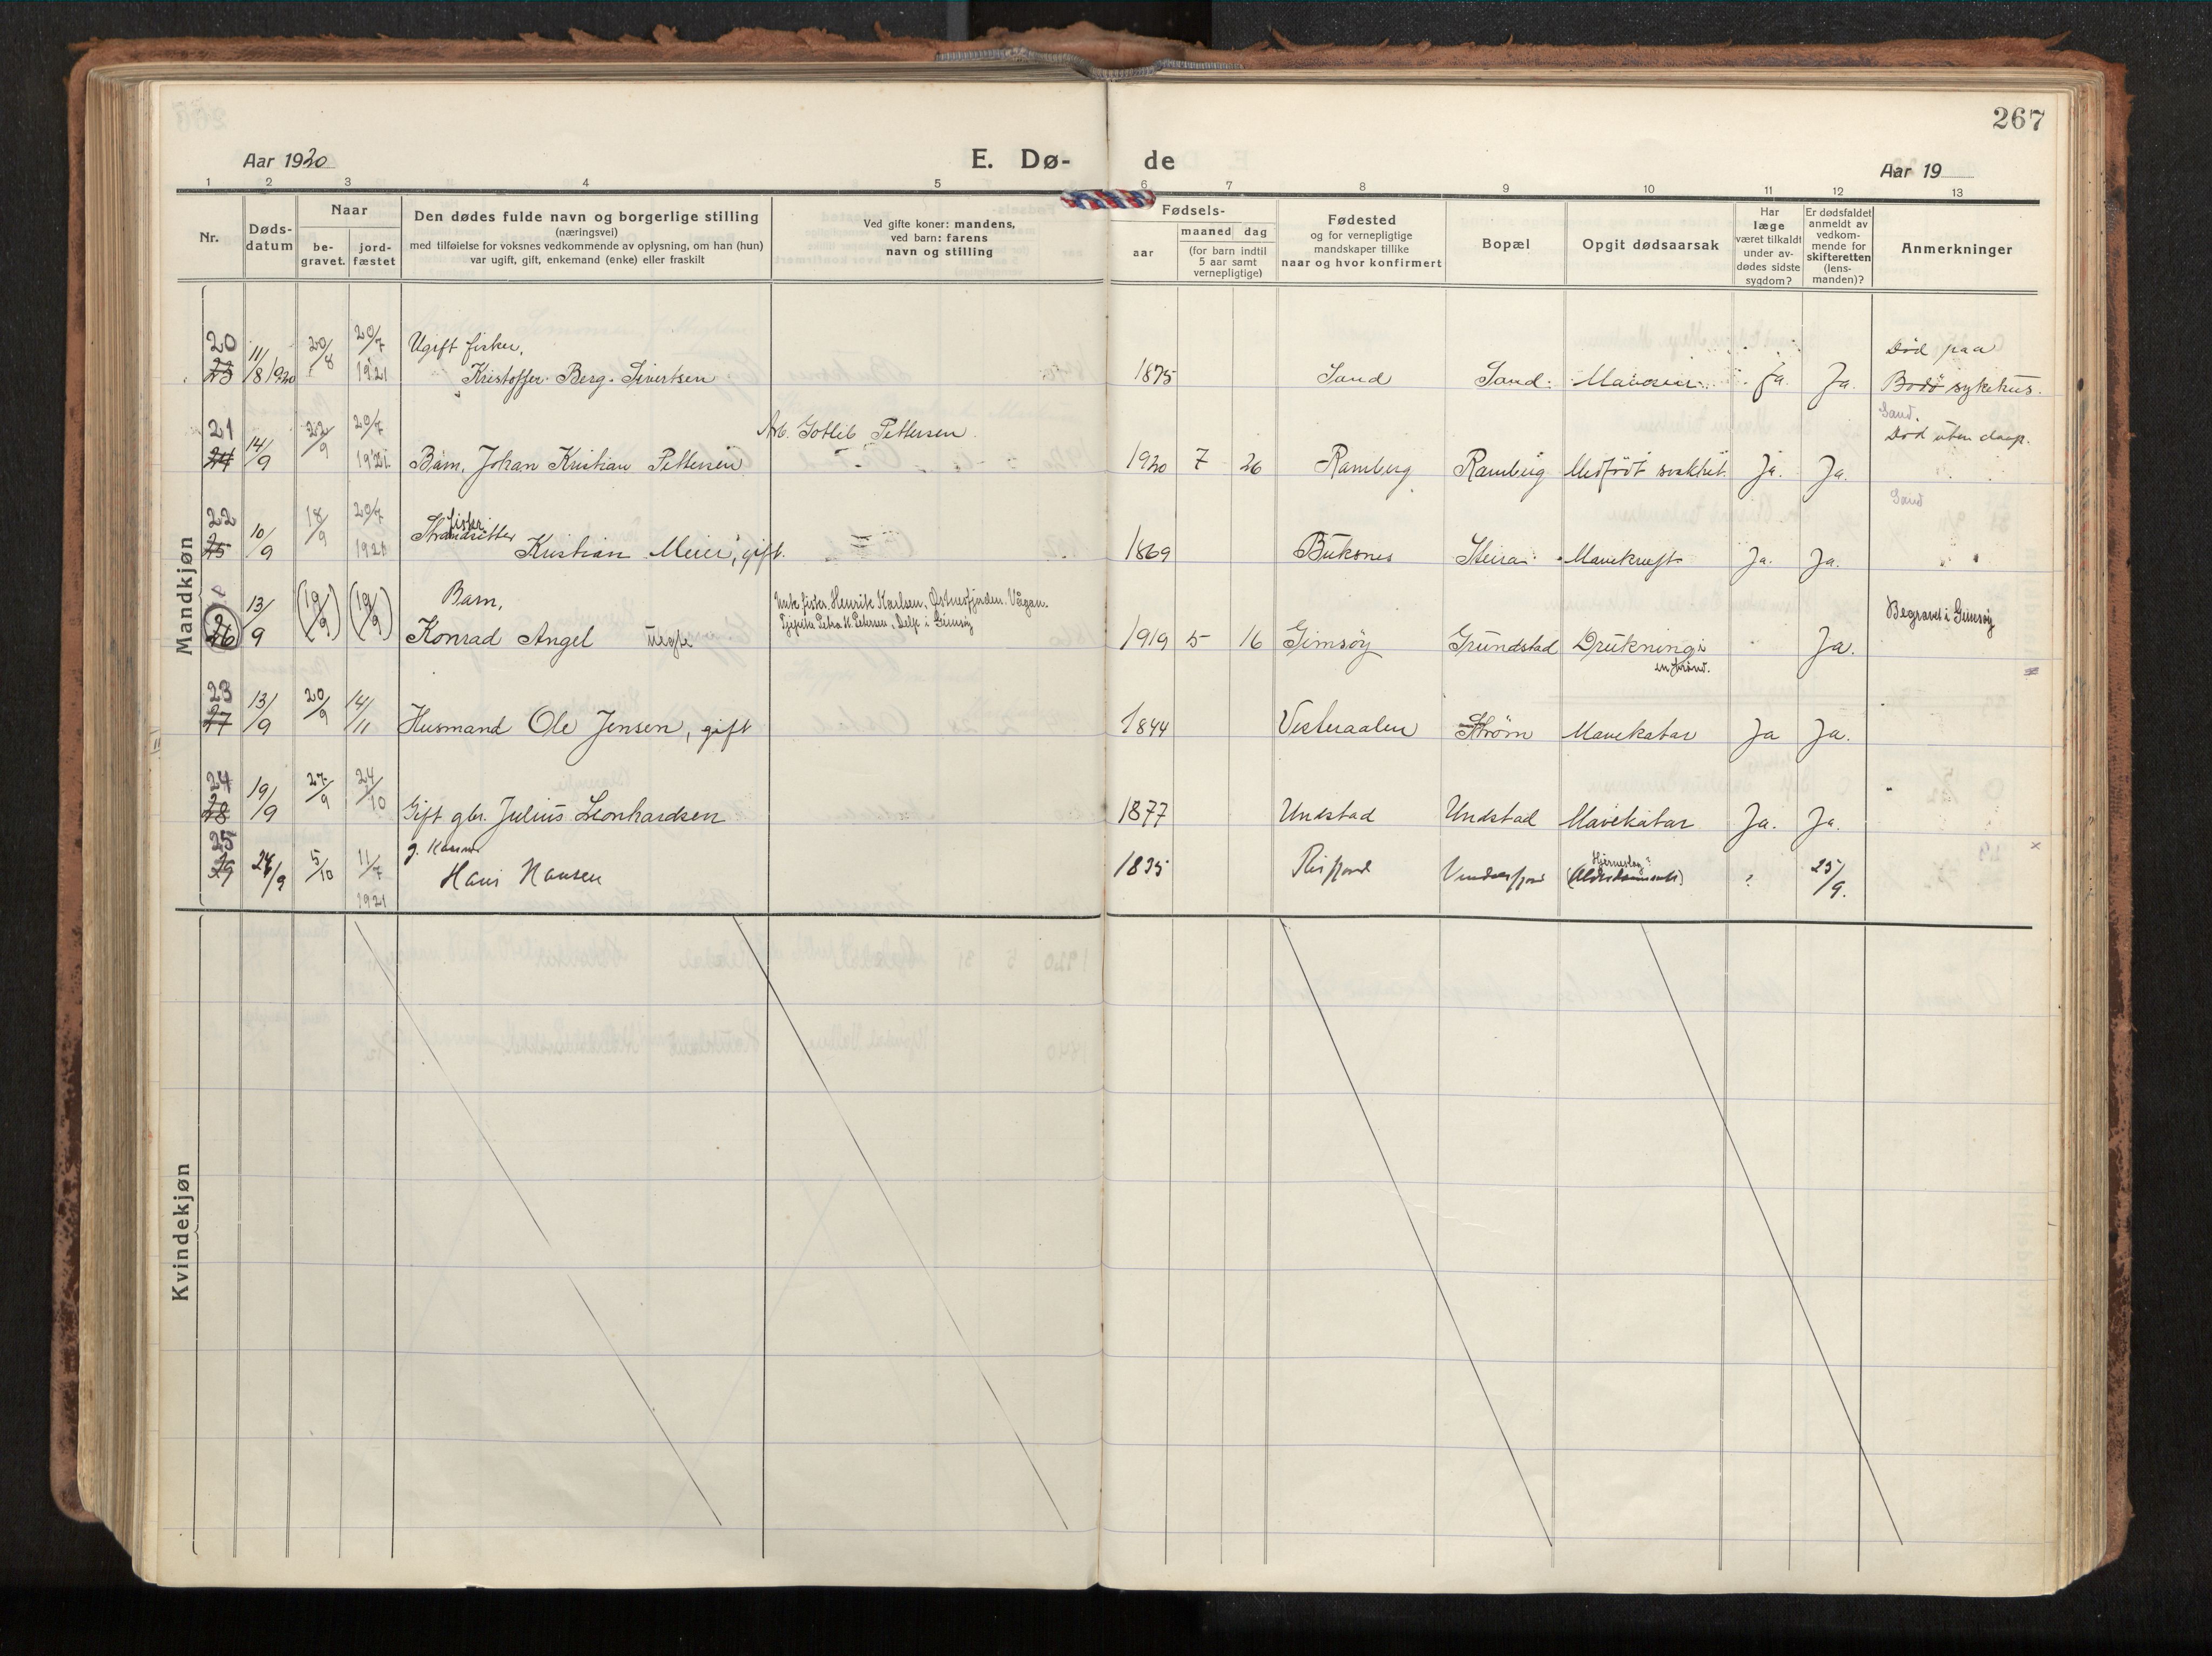 267
Aar 1920
E. Dø-
de
Aar 19
1 2 3 4 5 6 7 8 9 10 11 12 13
Nr.
Døds-
datum
Naar
be-
gravet.
jord-
fæstet
Den dødes fulde navn og borgerlige stilling
(næringsvei)
med tilføielse for voksnes vedkommende av oplysning, om han (hun)
var ugift, gift, enkemand (enke) eller fraskilt
Ved gifte koner: mandens,
ved barn: farens
navn og stilling
Fødsels-
aar
maaned dag
(for barn indtil
5 aar samt
vernepligtige)
Fødested
og for vernepligtige
mandskaper tillike
naar og hvor konfirmert
Bopæl
Opgit dødsaarsak
Har
læge
været tilkaldt
under av-
dødes sidste
sygdom?
Er dødsfaldet
anmeldt av
vedkom-
mende for
skifteretten
(lens-
manden)?
Anmerkninger
Mandkjøn
20 20/8 20/7 Ugift fisker, Død paa
23 11/8 1920 1921 Kristoffer Berg Sivertsen 1875 Sand Sand Ja. Ja. Bodø sykehus.
21 22/9 20/7 Arb. Gotlib Pettersen Sand.
Død uten daap.
24 14/9 1921 Barn, Johan Kristian Pettersen 1920 7 26 Ramberg Ramberg Medfødt svakhet. Ja. Ja.
22 18/9 20/7 fisker Sand
25 10/9 1921 Strandsitter Kristian Meier, gift. 1869 Buksnes Steira Mavekræft Ja. Ja.
13/9 (19/9) (19/9) Barn, Henrik Karlsen, Østnesfjorden. Vågan. Begravet i Gimsøy
26 Konrad Angel uegte 1919 5 16 Gimsøy Grundstad Drukning i Ja.
en brønd.
23 20/9 14/11
27 13/9 Husmand Ole Jensen, gift 1844 Vesteraalen Strøm Mavekatar Ja Ja.
24 27/9 24/10
28 19/9 Gift gbr. Julius Leonhardsen 1877 Unstad Unstad Mavekatar Ja. Ja.
25 g. Kaarm.
29 24/9 5/10 11/7 Hans Hansen 1835 ? 25/9.
1921
Kvindekjøn